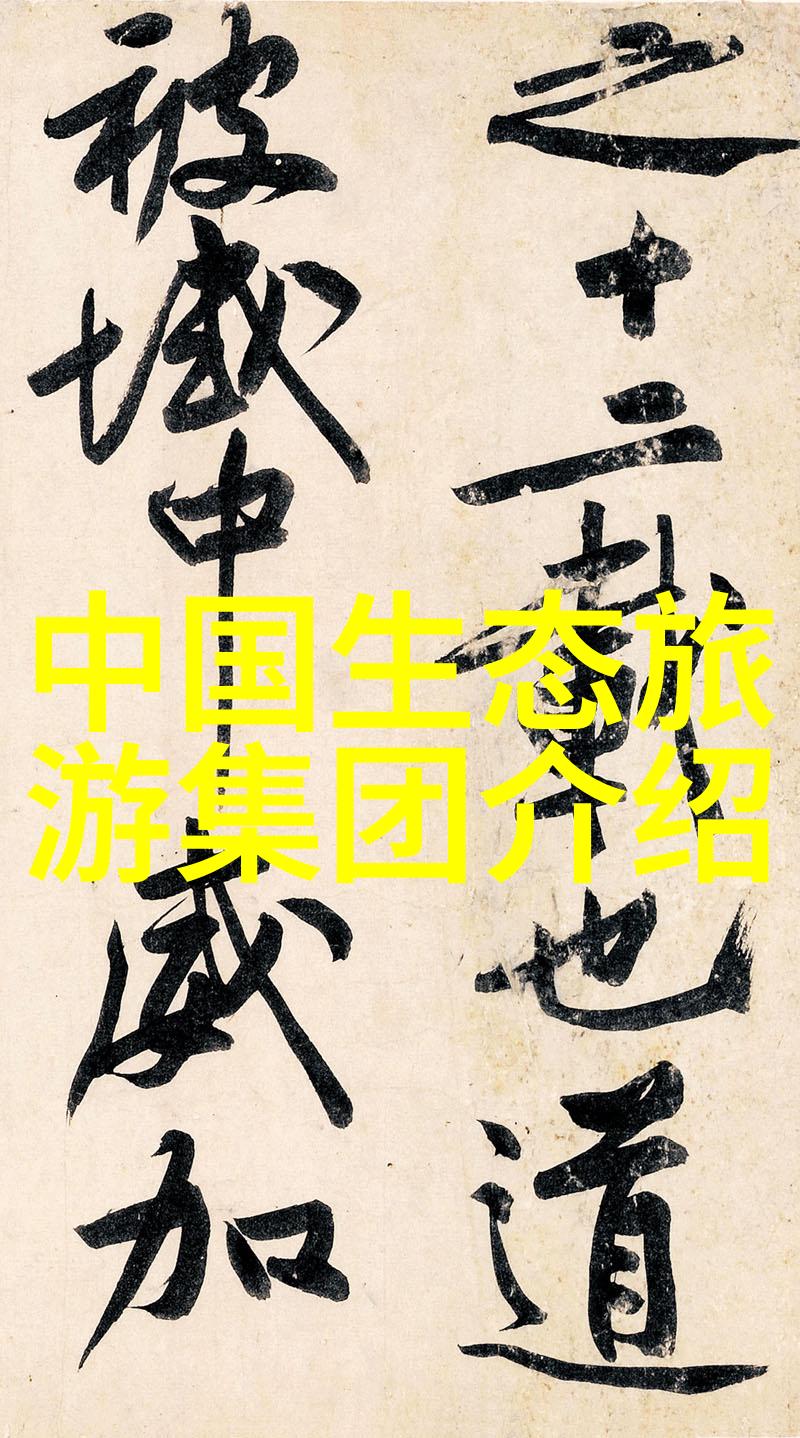 之十二載也道
被域中威加
中国生态旅
游集团介绍